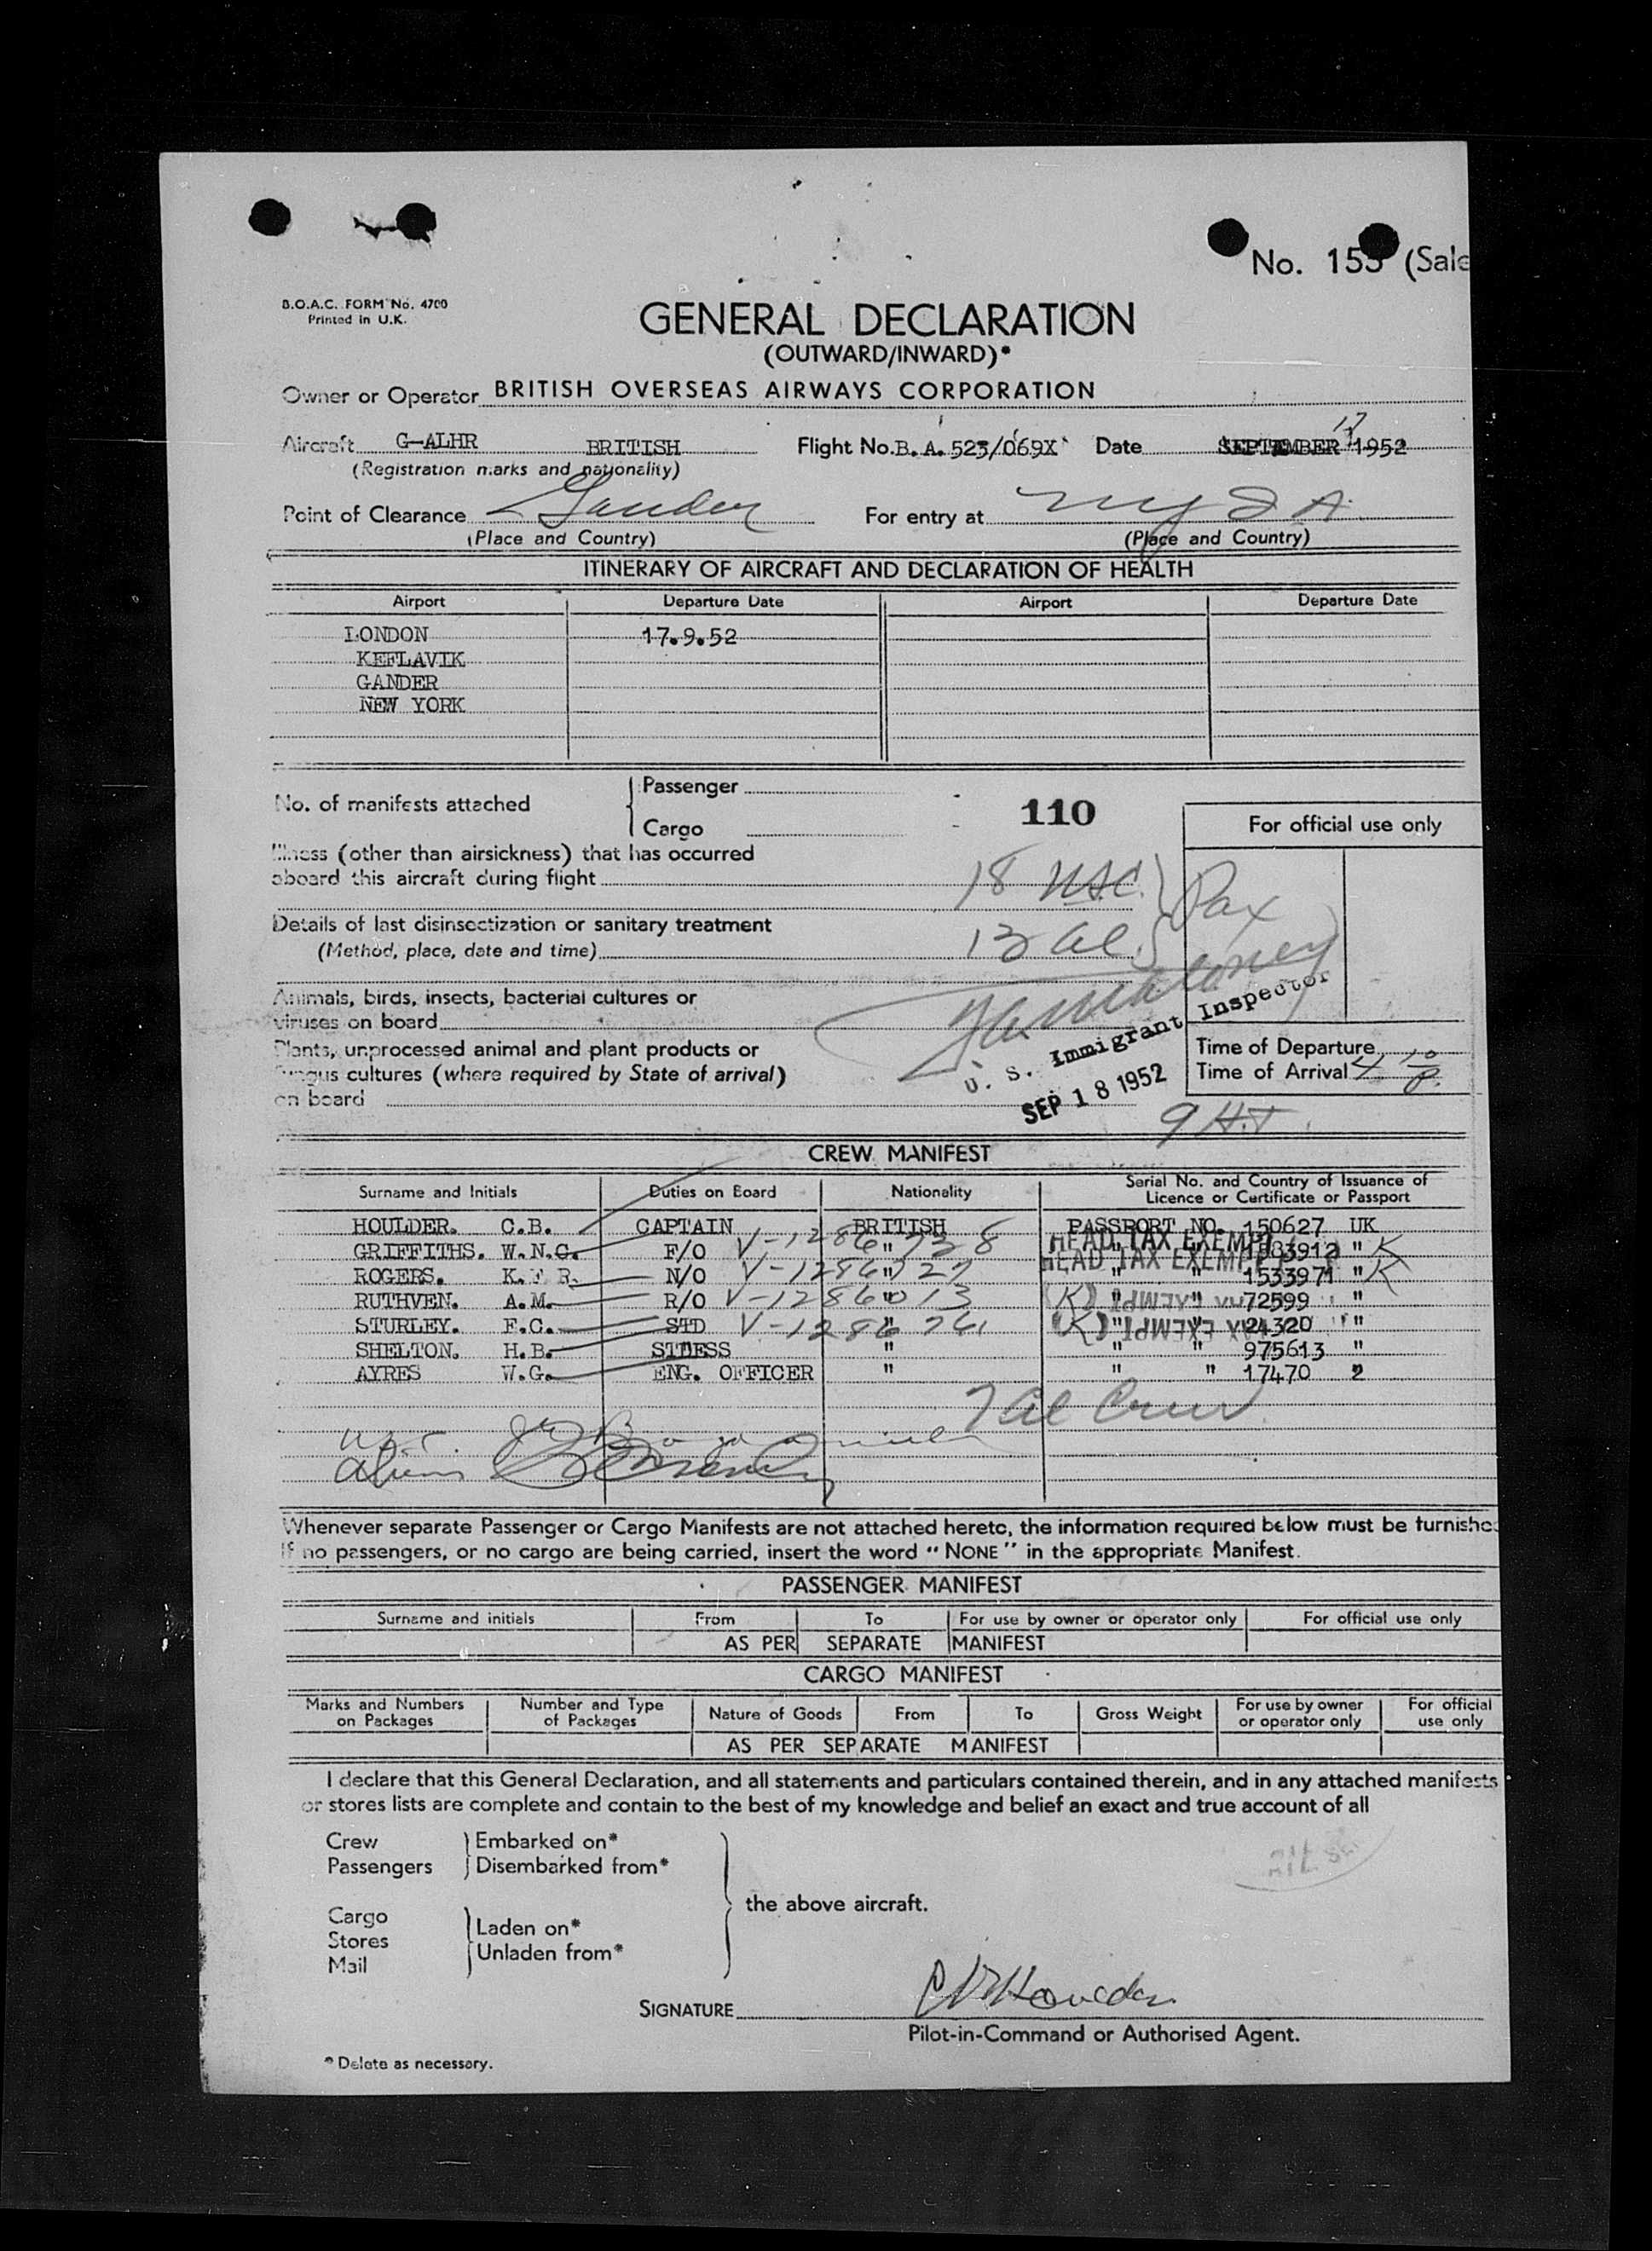 No. 153 (Sale
B.O.A.C. FORM No. 4700
Printed in U.K.
GENERAL DECLARATION
(OUTWARD/INWARD)*
Owner or Operator BRITISH OVERSEAS AIRWAYS CORPORATION
Aircraft G-ALHR BRITISH Flight No. B.A. 523/069X Date SEPTEMBER 17 1952
(Registration marks and nationality)
Point of Clearance Gander For entry at NY
(Place and Country) (Place and Country)
ITINERARY OF AIRCRAFT AND DECLARATION OF HEALTH
Airport Departure Date Airport Departure Date
LONDON 17.9.52
KEFLAVIK
GANDER
NEW YORK
No. of manifests attached Passenger
Cargo
110
For official use only
Illness (other than airsickness) that has occurred
aboard this aircraft during flight
18 USC
Pax
Details of last disinsectization or sanitary treatment
(Method, place, date and time)
13 al.
Animals, birds, insects, bacterial cultures or
viruses on board
U. S. Immigrant Inspector
Plants, unprocessed animal and plant products or
fungus cultures (where required by State of arrival)
on board
SEP 18 1952
Time of Departure
Time of Arrival 4 10 P.
9 H.T.
CREW MANIFEST
Surname and Initials Duties on Board Nationality Serial No. and Country of Issuance of
Licence or Certificate or Passport
HOULDER. C.B. CAPTAIN BRITISH PASSPORT NO. 150627 UK
GRIFFITHS. W.N.G. F/O V-1286738 " HEAD TAX EXEMPT " K
ROGERS. K.F R. N/O V-1286727 " HEAD TAX EXEMPT " " 1533971 " K
RUTHVEN. A.M. R/O V-1286013 " (K) " " 72599 "
STURLEY. F.C. STD V-1286761 " (K) " " 24320 "
SHELTON. H.B. STDESS " " " 975613 "
AYRES W.G. ENG. OFFICER " " " 17470 2
7 al Crew
USC.
Aliens
Whenever separate Passenger or Cargo Manifests are not attached hereto, the information required below must be furnished
If no passengers, or no cargo are being carried, insert the word "NONE" in the appropriate Manifest.
PASSENGER MANIFEST
Surname and initials From To For use by owner or operator only For official use only
AS PER SEPARATE MANIFEST
CARGO MANIFEST
Marks and Numbers on Packages Number and Type of Packages Nature of Goods From To Gross Weight For use by owner or operator only For official use only
AS PER SEPARATE MANIFEST
I declare that this General Declaration, and all statements and particulars contained therein, and in any attached manifests
or stores lists are complete and contain to the best of my knowledge and belief an exact and true account of all
Crew Embarked on*
Passengers Disembarked from*
the above aircraft.
Cargo
Stores Laden on*
Mail Unladen from*
SIGNATURE C B Houlder
Pilot-in-Command or Authorised Agent.
* Delete as necessary.